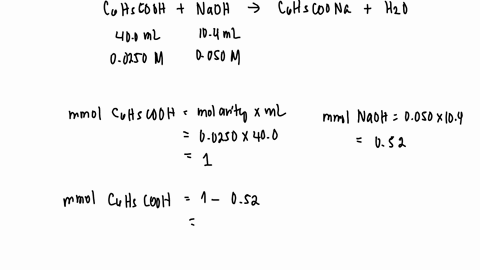 C6H5COOH + NaOH → C6H5COONa + H2O
40.0 mL 10.4 mL
0.0250 M 0.050 M
mmol C6H5COOH = molarity x mL
= 0.0250 x 40.0
= 1
mmol NaOH = 0.050 x 10.4
= 0.52
mmol C6H5COOH = 1 - 0.52
=